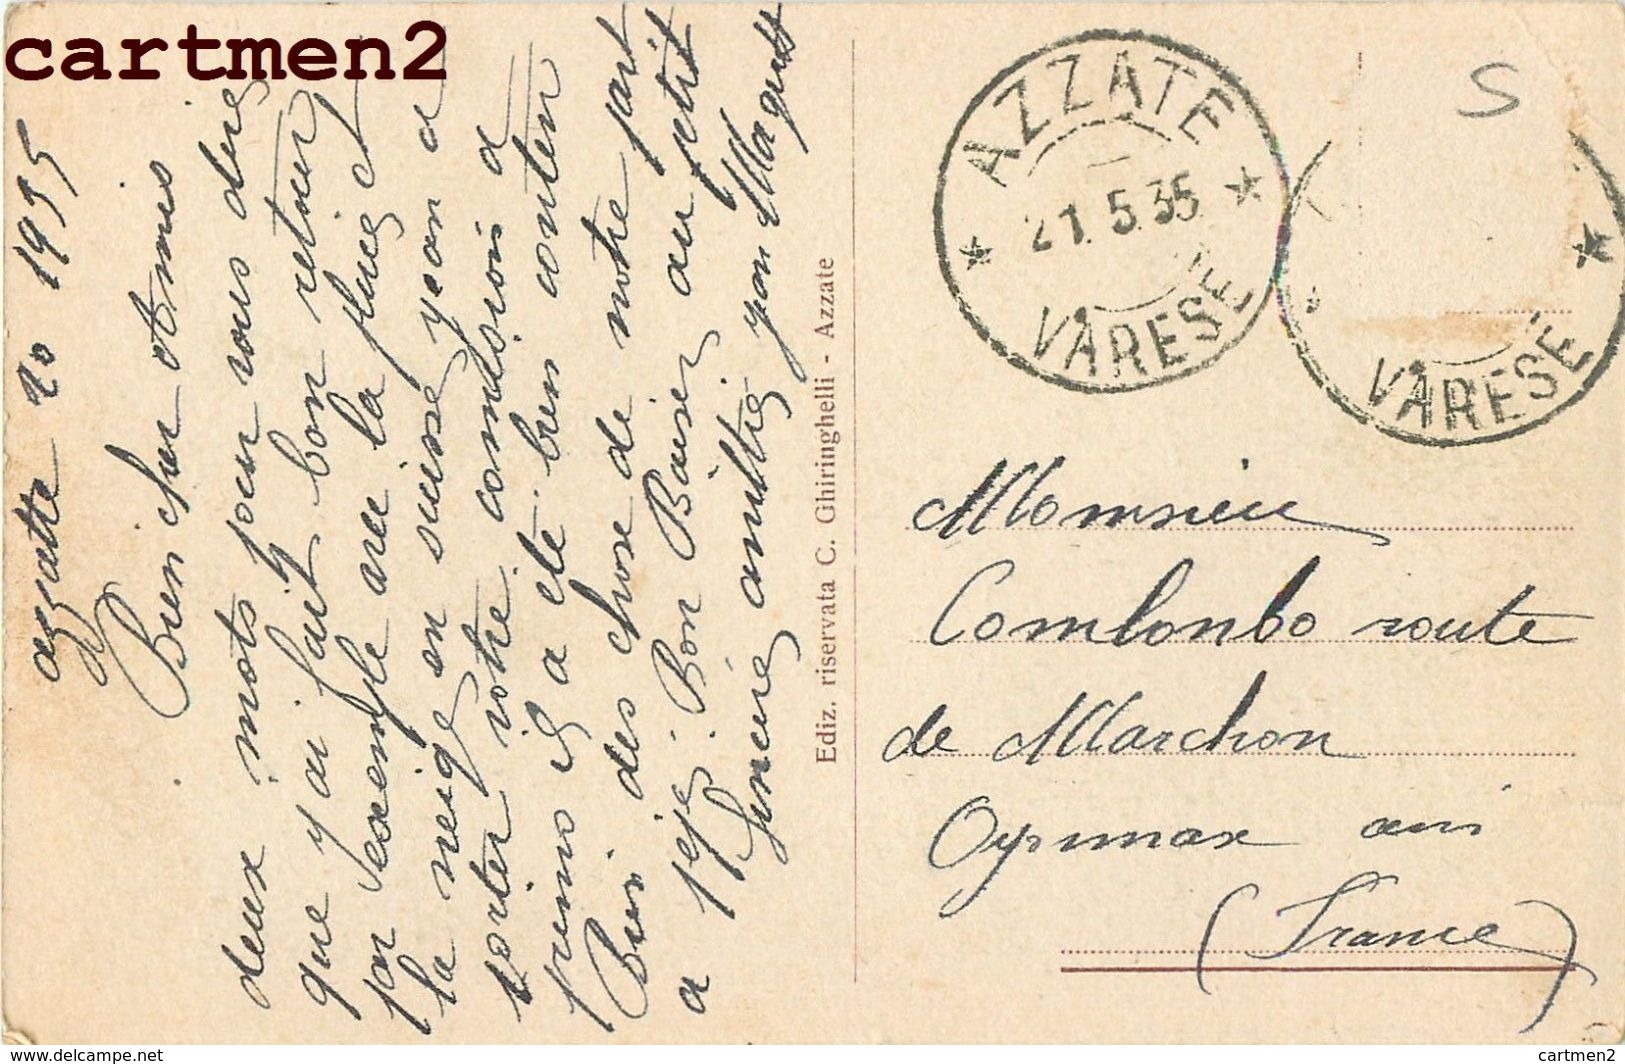 cartmen2
azzatte 20 1935
Bien cher Amis
deux mots pour vous dire
que y ai fait bon retour
par exemple avec la pluie et
la neige en suisse y con a
votre comdisois a
il a ete bien conten
Bien des chose de notre part
a pepe. Bon Baiser au petit
Ediz. riservata C. Ghiringhelli - Azzate
AZZATE
21.5.35
VARESE
VARESE
S
Monsieu
Comlonbo route
de Marchon
Oyonnax ain
(France)
www.delcampe.net
cartmen2